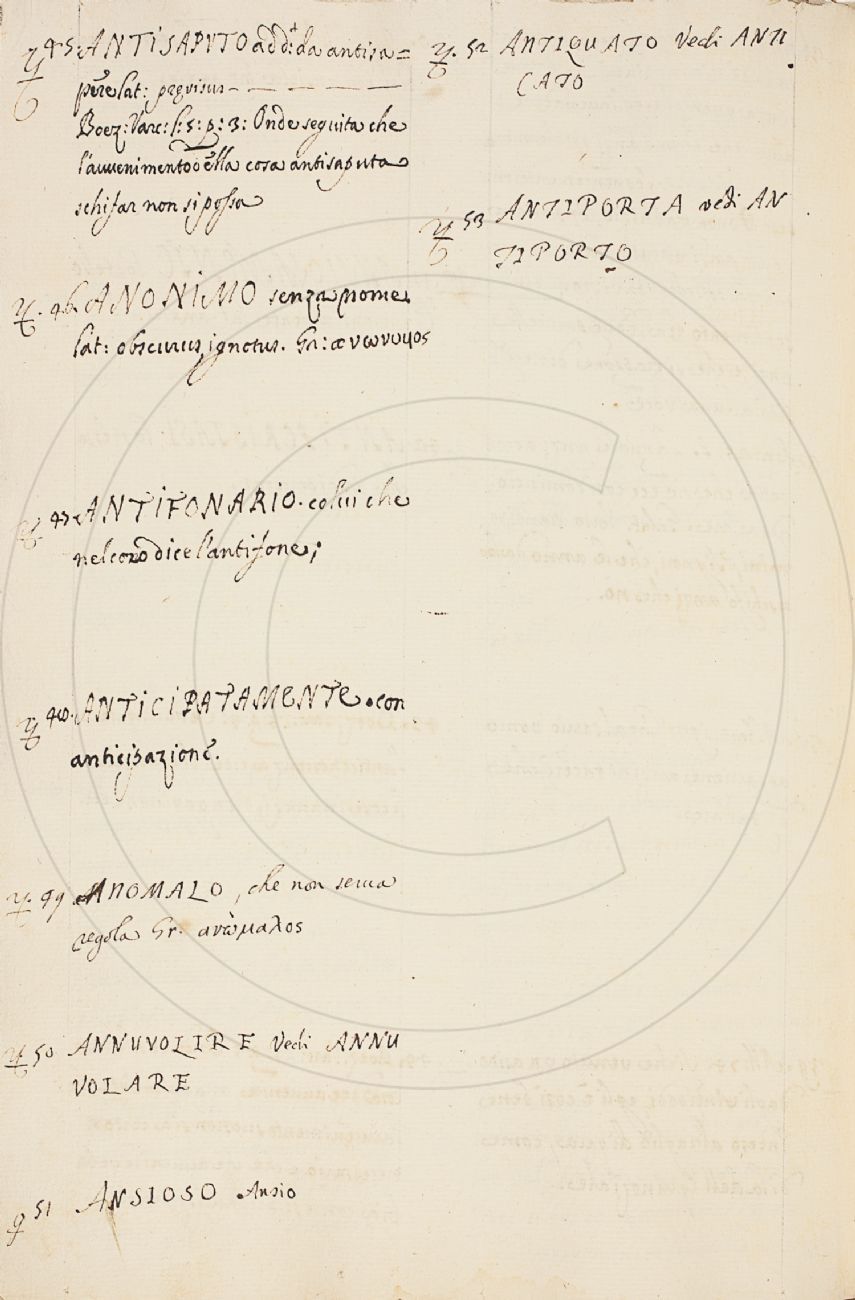 45. ANTISAPUTO add: da antisa=
pere lat: prævisus — — — —
Boez: Varc: l: 5: p: 3: Onde seguita che
l'avvenimento della cosa antisaputa
schifar non si possa
46. ANONIMO senza nome,
lat: obscurus, ignotus. Gr: ανωνυμος
47. ANTIFONARIO. colui che
nel coro dice l'antifone;
48. ANTICIPATAMENTE. con
anticipazione.
49 ANOMALO, che non serva
regola Gr. ανώμαλος
50 ANNUVOLIRE Vedi ANNU
VOLARE
51 ANSIOSO Ansio
52 ANTIQUATO Vedi ANTI
CATO
53 ANTIPORTA vedi AN
TIPORTO